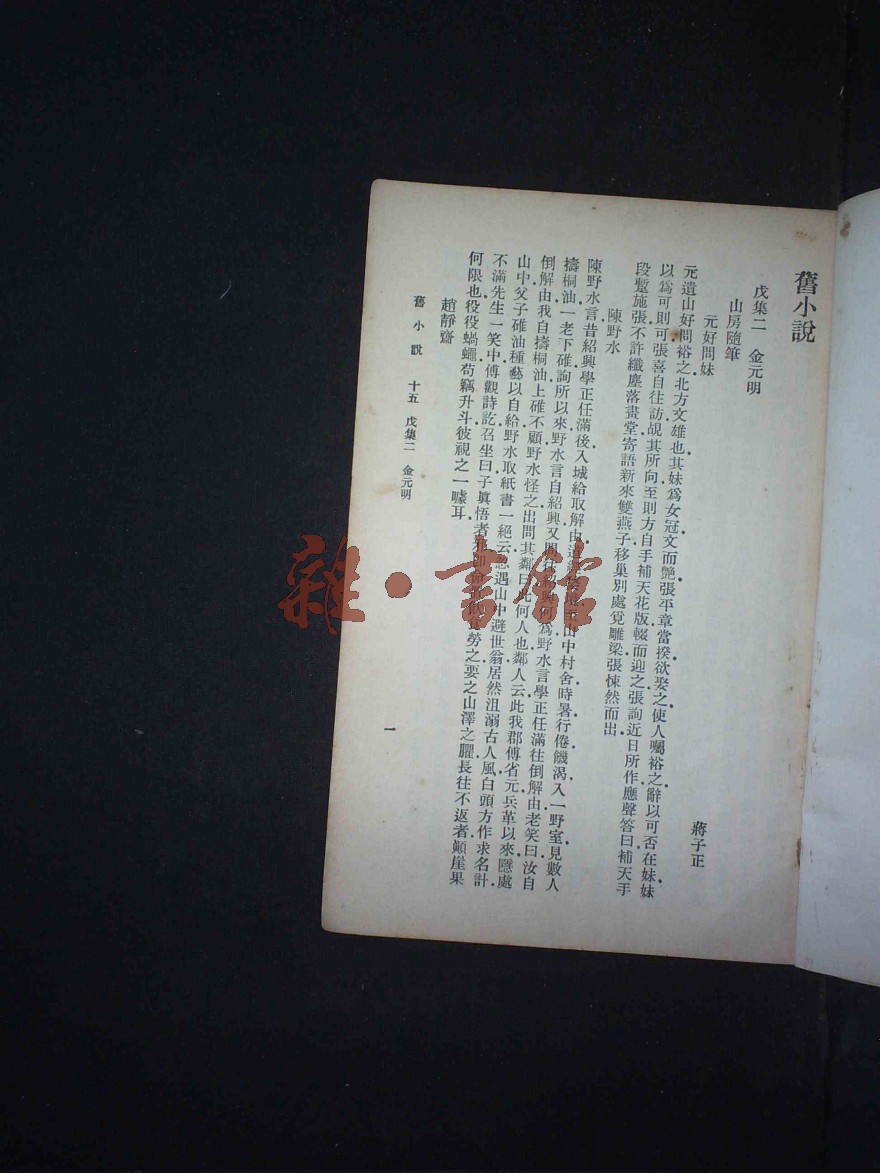 舊小說
戊集二　金元明
山房隨筆
蔣子正
元好問妹
元遺山好問裕之北方文雄也其妹爲女冠文而艷張平章當揆欲娶之使人囑裕之辭以可否在妹妹
以爲可則可張喜自往訪覘其所向至則方自手補天花版輟而迎之張詢近日所作應聲答曰補天手
段蹔施張不許纖塵落畫堂寄語新來雙燕子移巢別處覓雕梁張悚然而出
陳野水
陳野水言昔紹興學正任滿後入城給取解由 山中村舍時暑行倦饑渴入一野室見數人
擣桐油一老下碓詢所以來野水言自紹興又問 何爲野水言學正任滿往倒解由老笑曰汝自
倒解由我自擣桐油上碓不顧野水怪之出問其鄰曰此何人也鄰人云此我郡傅省元兵革以來隱處
山中父子碓油種藝以自給野水取紙書一絕云忽遇山中避世翁居然沮溺古人風白頭方作求名計
不滿先生一笑中傅觀詩訖召坐曰子眞悟者 勞之要之山澤之臞長往不返者顚崖果
何限也役役蝸蠅苟竊升斗彼視之一噱耳
趙靜齋
舊小說　十五　戊集二　金元明
一
雜·書館